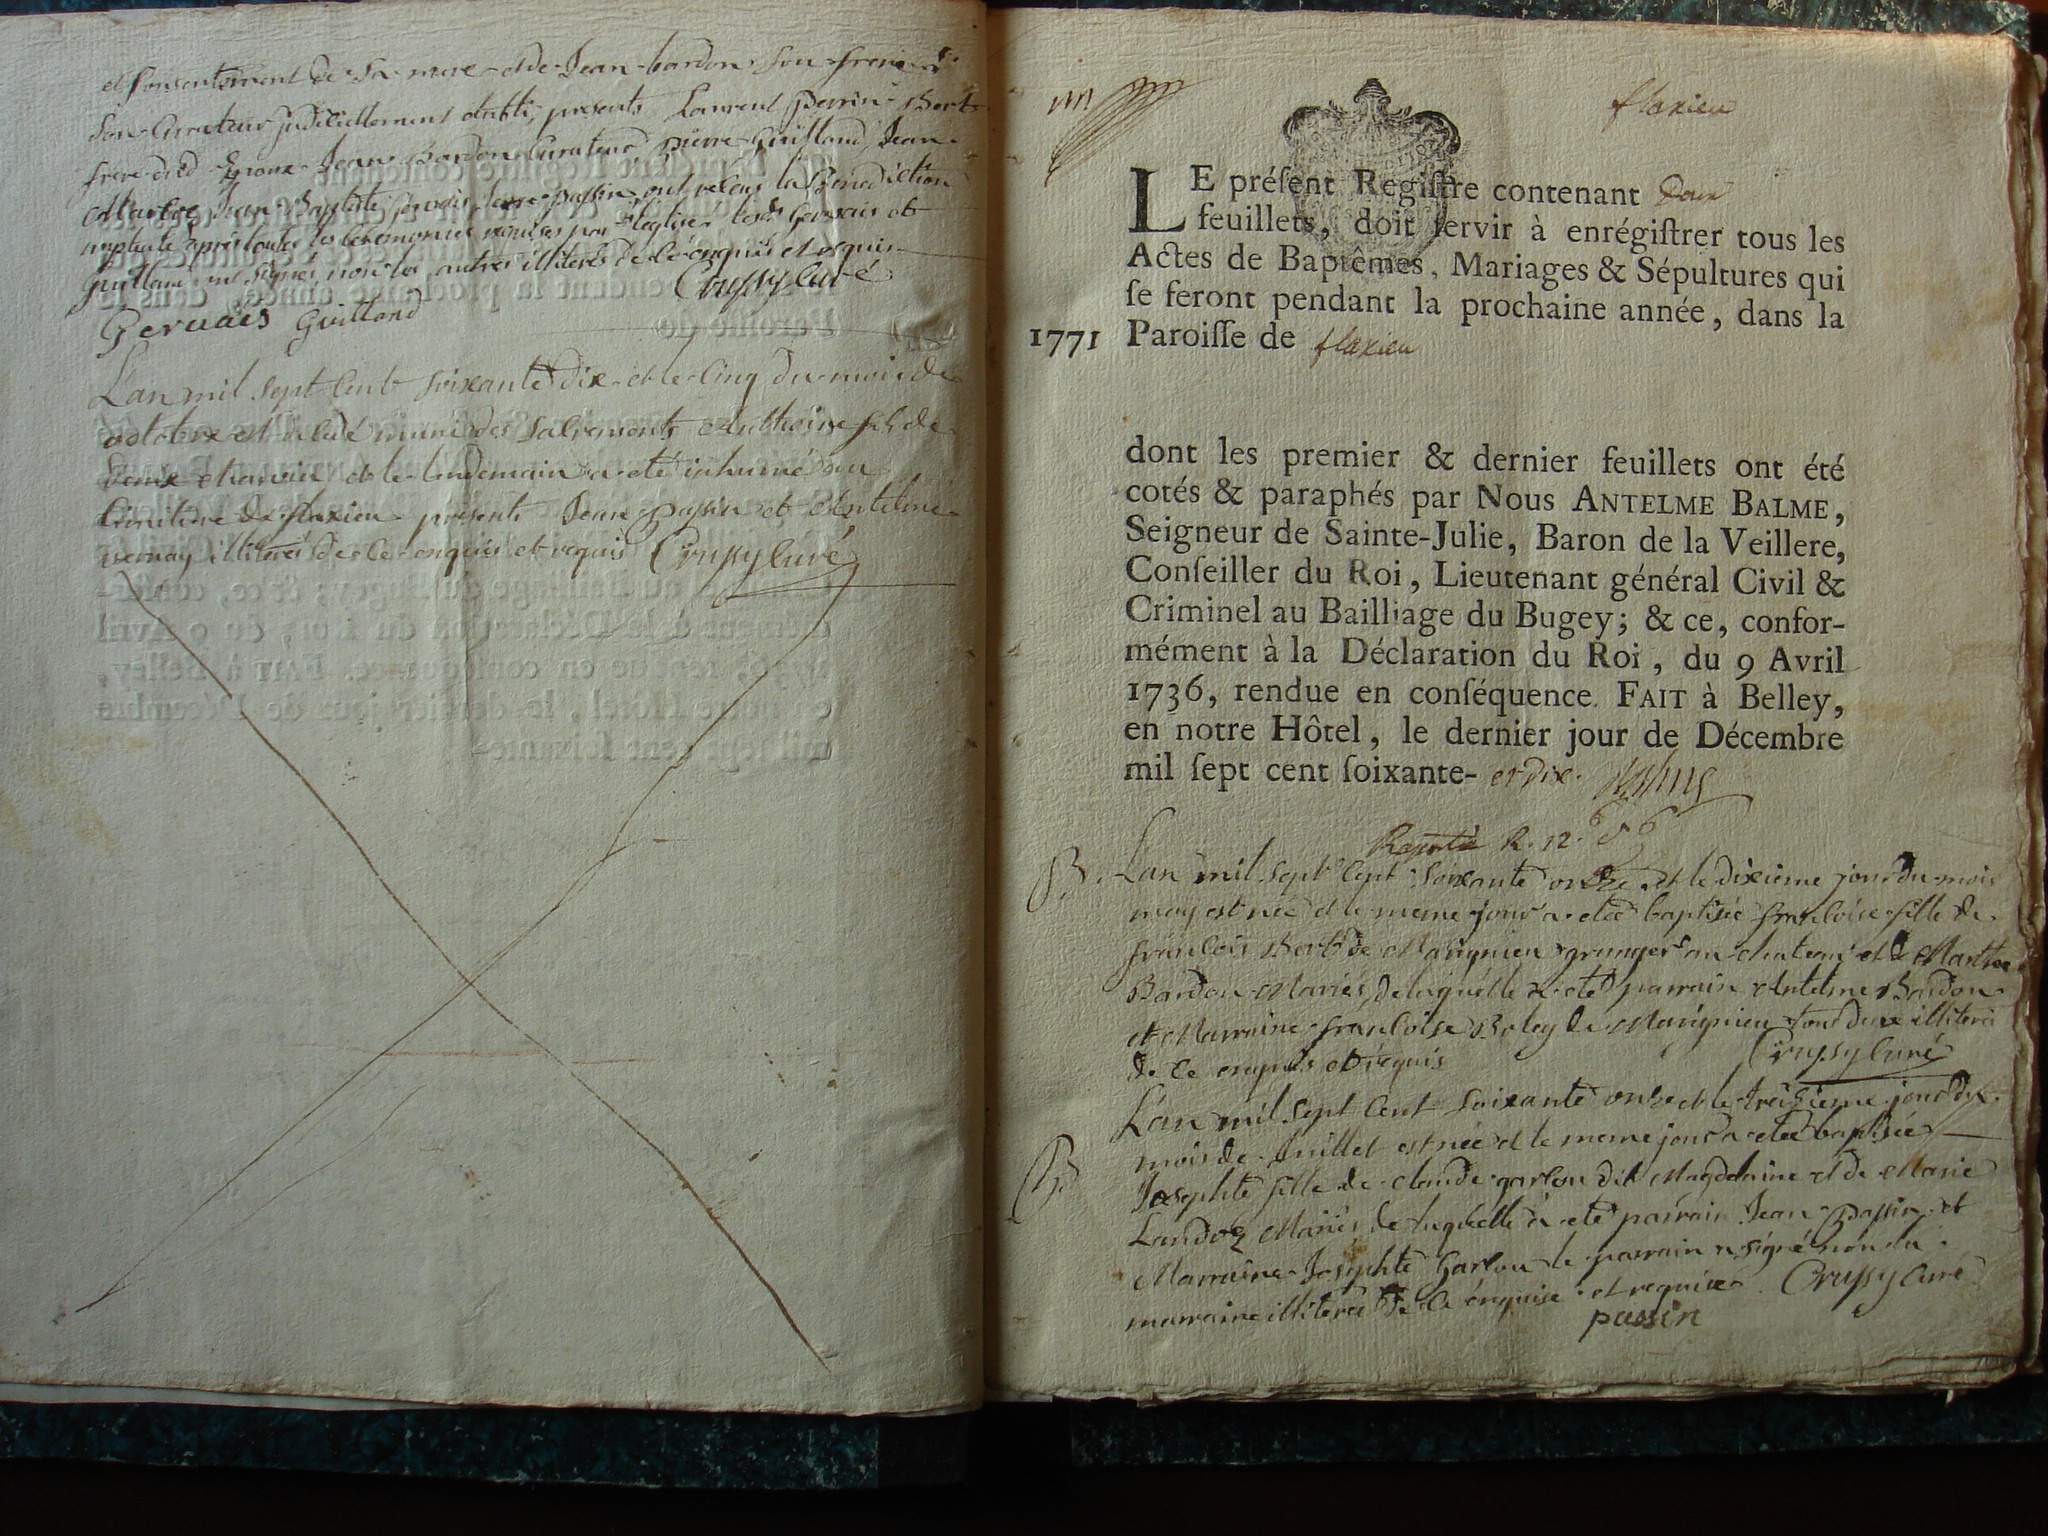 et Consentement de sa mere et de Jean bardon son frere et
son Curateur judiciellement etabli, presents Laurent Perrin
frere dud Epoux Jean Bardon Curateur pierre Guilland, Jean
Jean Baptiste gervais, passin, ont receus la Benediction
nuptiale apres toutes les Ceremonies requises par l'eglise, lesds Gervais et
Guilland ont signés non les autres illiterés de ce enquis et requis
Crussy Curé
Gervais Guilland
L'an mil sept Cent soixante dix et le Cinq du mois de
octobre est decedé muni des sacrements Anthoine fils de
et le lendemain a eté inhumé au
Cimitiere de flaxieu presents Jean Passin et Antelme
vernay illiterés de Ce enquis et requis Crussy Curé
flaxieu
LE préſent Regiſtre contenant Deux
feuillets, doit ſervir à enrégiſtrer tous les
Actes de Baptêmes, Mariages & Sépultures qui
ſe feront pendant la prochaine année, dans la
1771 Paroiſſe de flaxieu
dont les premier & dernier feuillets ont été
cotés & paraphés par Nous ANTELME BALME,
Seigneur de Sainte-Julie, Baron de la Veillere,
Conſeiller du Roi, Lieutenant général Civil &
Criminel au Bailliage du Bugey; & ce, confor-
mément à la Déclaration du Roi, du 9 Avril
1736, rendue en conſéquence. FAIT à Belley,
en notre Hôtel, le dernier jour de Décembre
mil ſept cent ſoixante- et dix.
R. 12.
B. L'an mil sept Cent soixante onze et le dixieme jour du mois
may est née et le meme jour a eteé baptisée françoise fille de
françois de Marignieu granger au chateau et de Marthe
Bardon Mariés, de laquelle a eté parrain Antelme Bardon
et Marraine françoise de Marignieu tous deux illiterés
de Ce enquis et requis Crussy Curé
B. L'an mil sept Cent soixante onze et le treizieme jour du
mois de Juillet est née et le meme jour a eteé baptisée
Josephte fille de Claude garlon dit Magdelaine et de Marie
Landoz Mariés de laquelle a eté parrain Jean Passin et
Marraine Josephte Garlon le parrain a signé non la
marraine illiterée de Ce enquise et requise Crussy Curé
passin